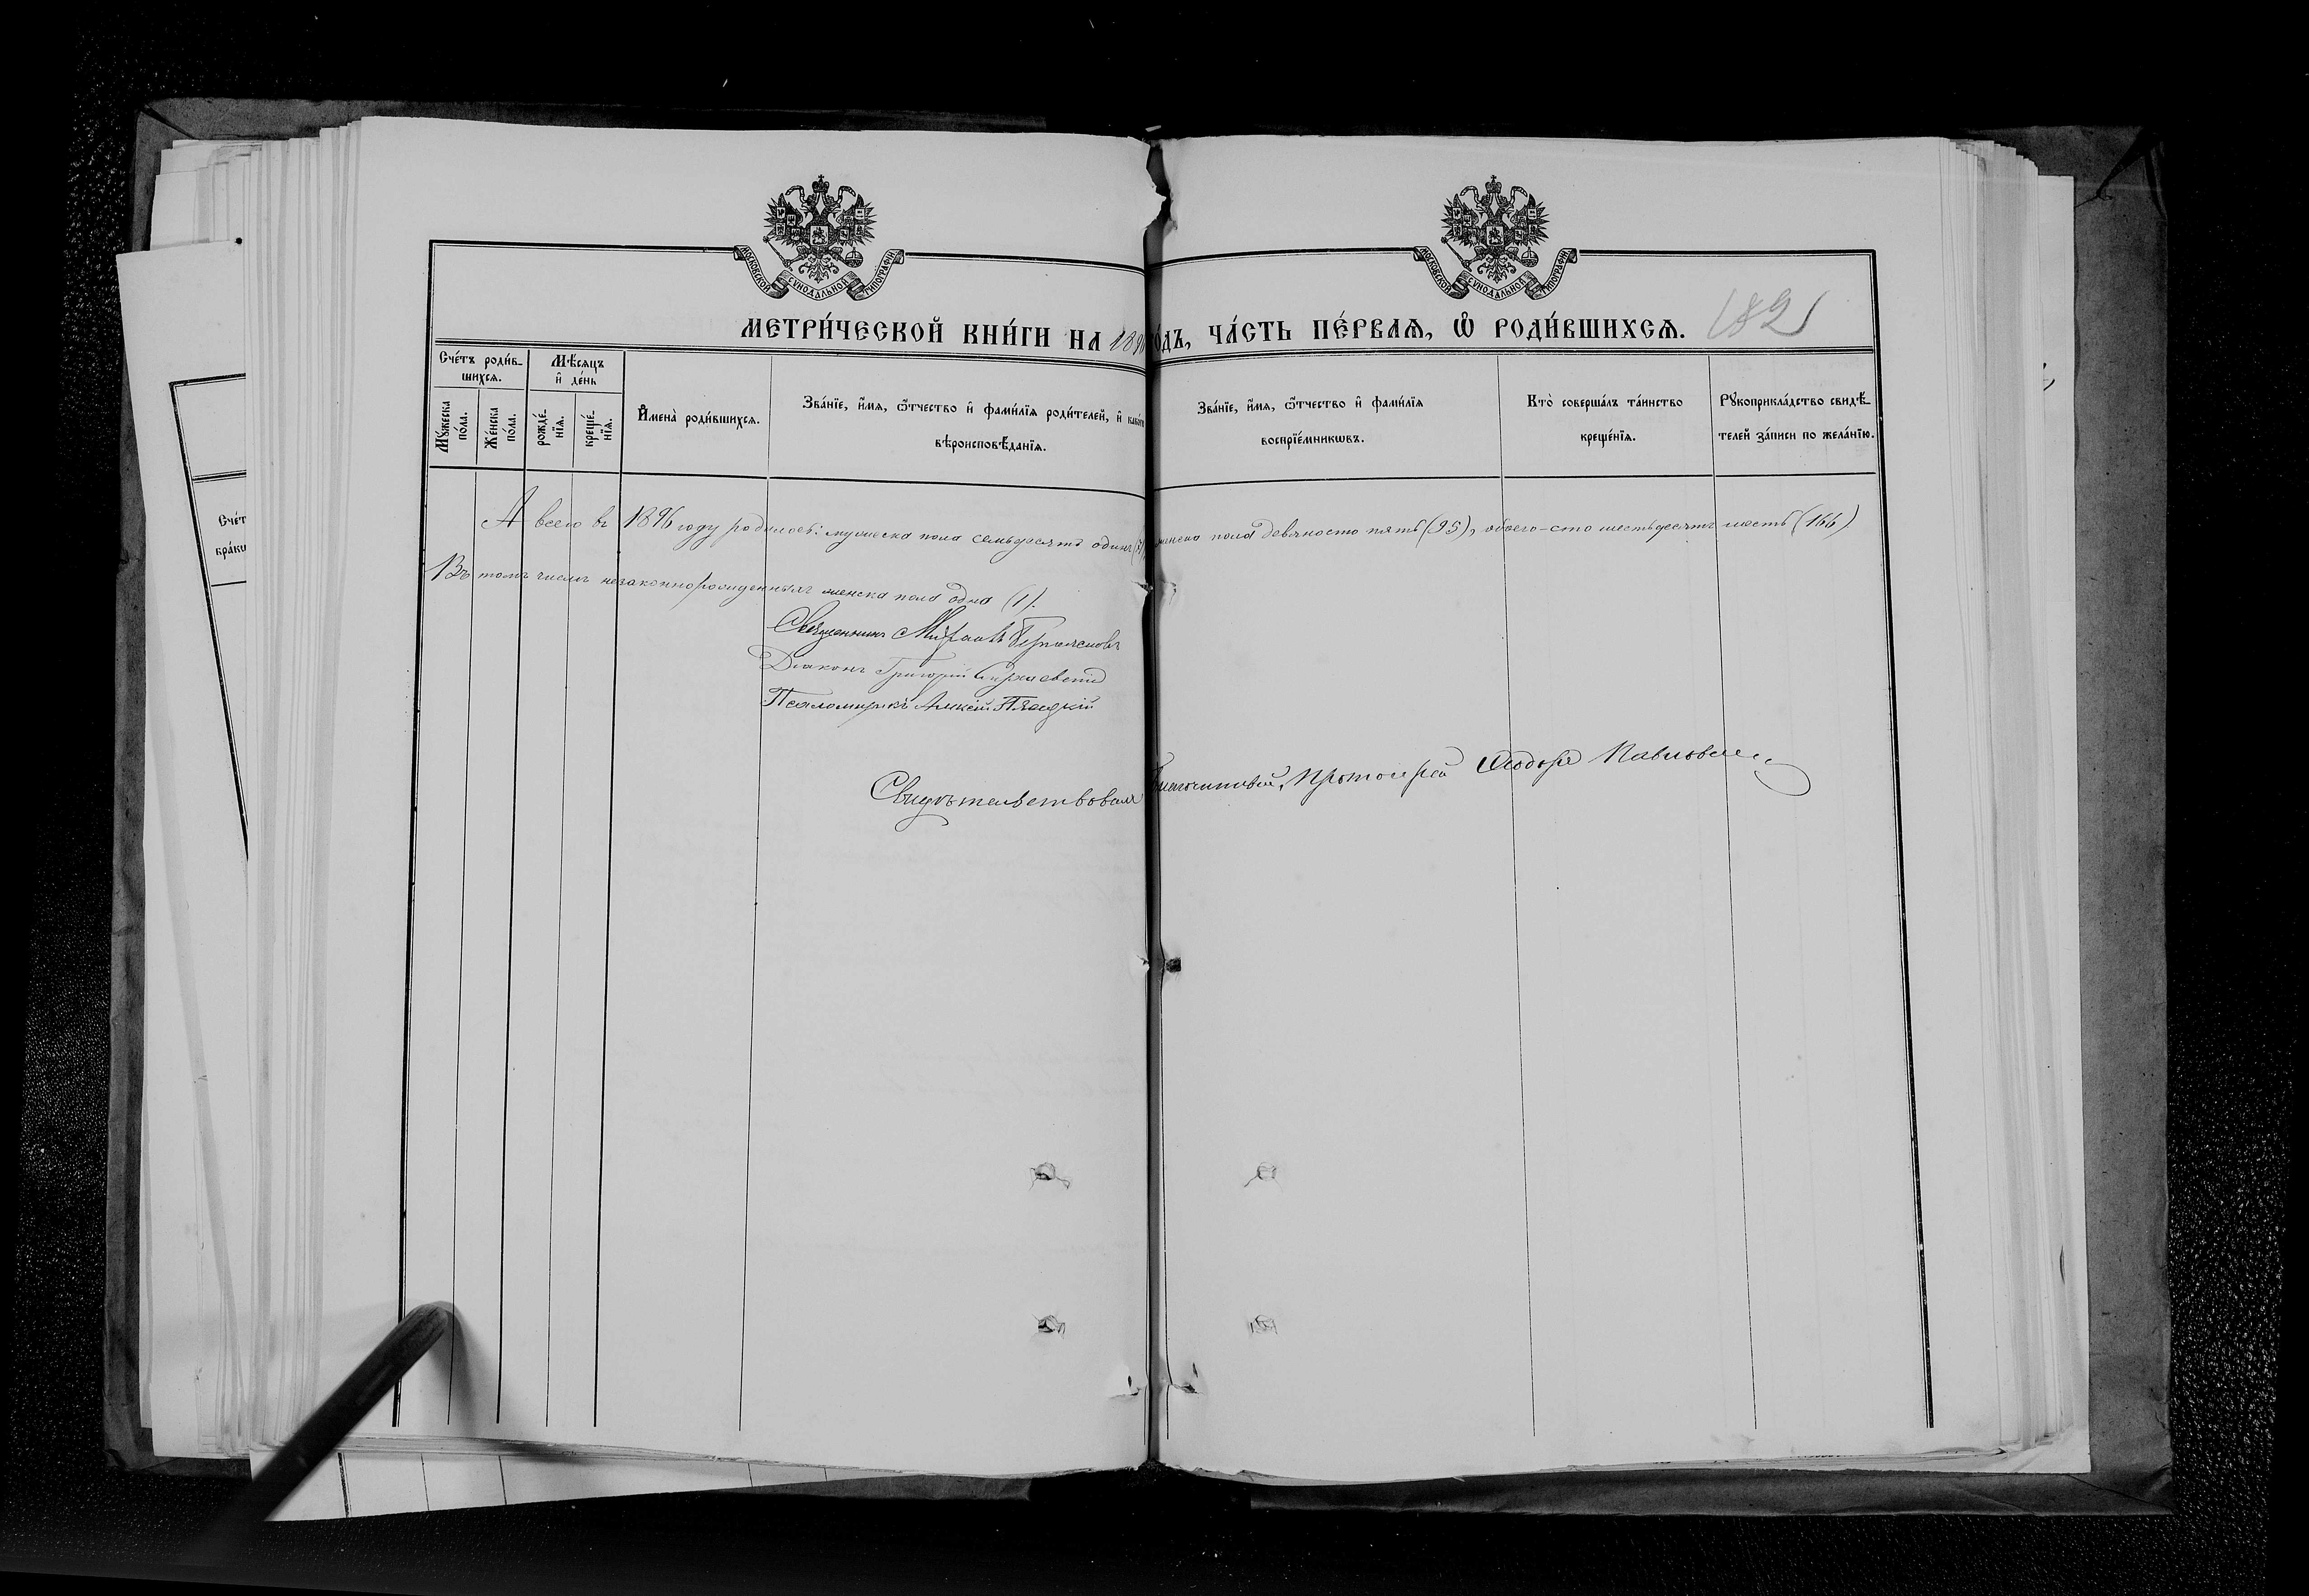 МОСКОВСКОЙ СѴНОДАЛЬНОЙ ТИПОГРАФІИ
МОСКОВСКОЙ СѴНОДАЛЬНОЙ ТИПОГРАФІИ
МЕТРИ́ЧЕСКОЙ КНИ́ГИ НА 189 го́дъ, ЧА́СТЬ ПЕ́РВАѦ, Ѿ РОДИ́ВШИХСѦ. 182
Сче́тъ роди́в-
шихсѧ.
Мѣ́сяцъ
и҆ де́нь
Мꙋ́жеска
по́ла.
Же́нска
по́ла.
рожде́-
нїѧ.
креще́-
нїѧ.
И҆мена̀ роди́вшихсѧ.
Зва́нїе, и҆́мѧ, ѻ҆́тчество и҆ фами́лїѧ роди́телей, и҆
вѣроисповѣ́данїѧ.
Зва́нїе, и҆́мѧ, ѻ҆́тчество и҆ фами́лїѧ
воспрїе́мникѡвъ.
Кто̀ соверша́лъ та́инство
креще́нїѧ.
Рꙋкоприкла́дство свидѣ́-
телей за́писи по жела́нїю.
А всего въ 1896 году родилось: мужеска пола семьдесятъ одинъ женска пола девяносто пять (95), обоего-сто шестьдесятъ шесть (166)
Въ томъ числѣ незаконнорожденныхъ женска пола одна (1).
Священникъ Михаилъ
Діаконъ Григорій
Псаломщикъ Алексій
Свидѣтельствовалъ Благочинный, Протоіерей Ѳеодоръ
Сче́т
бра́ко